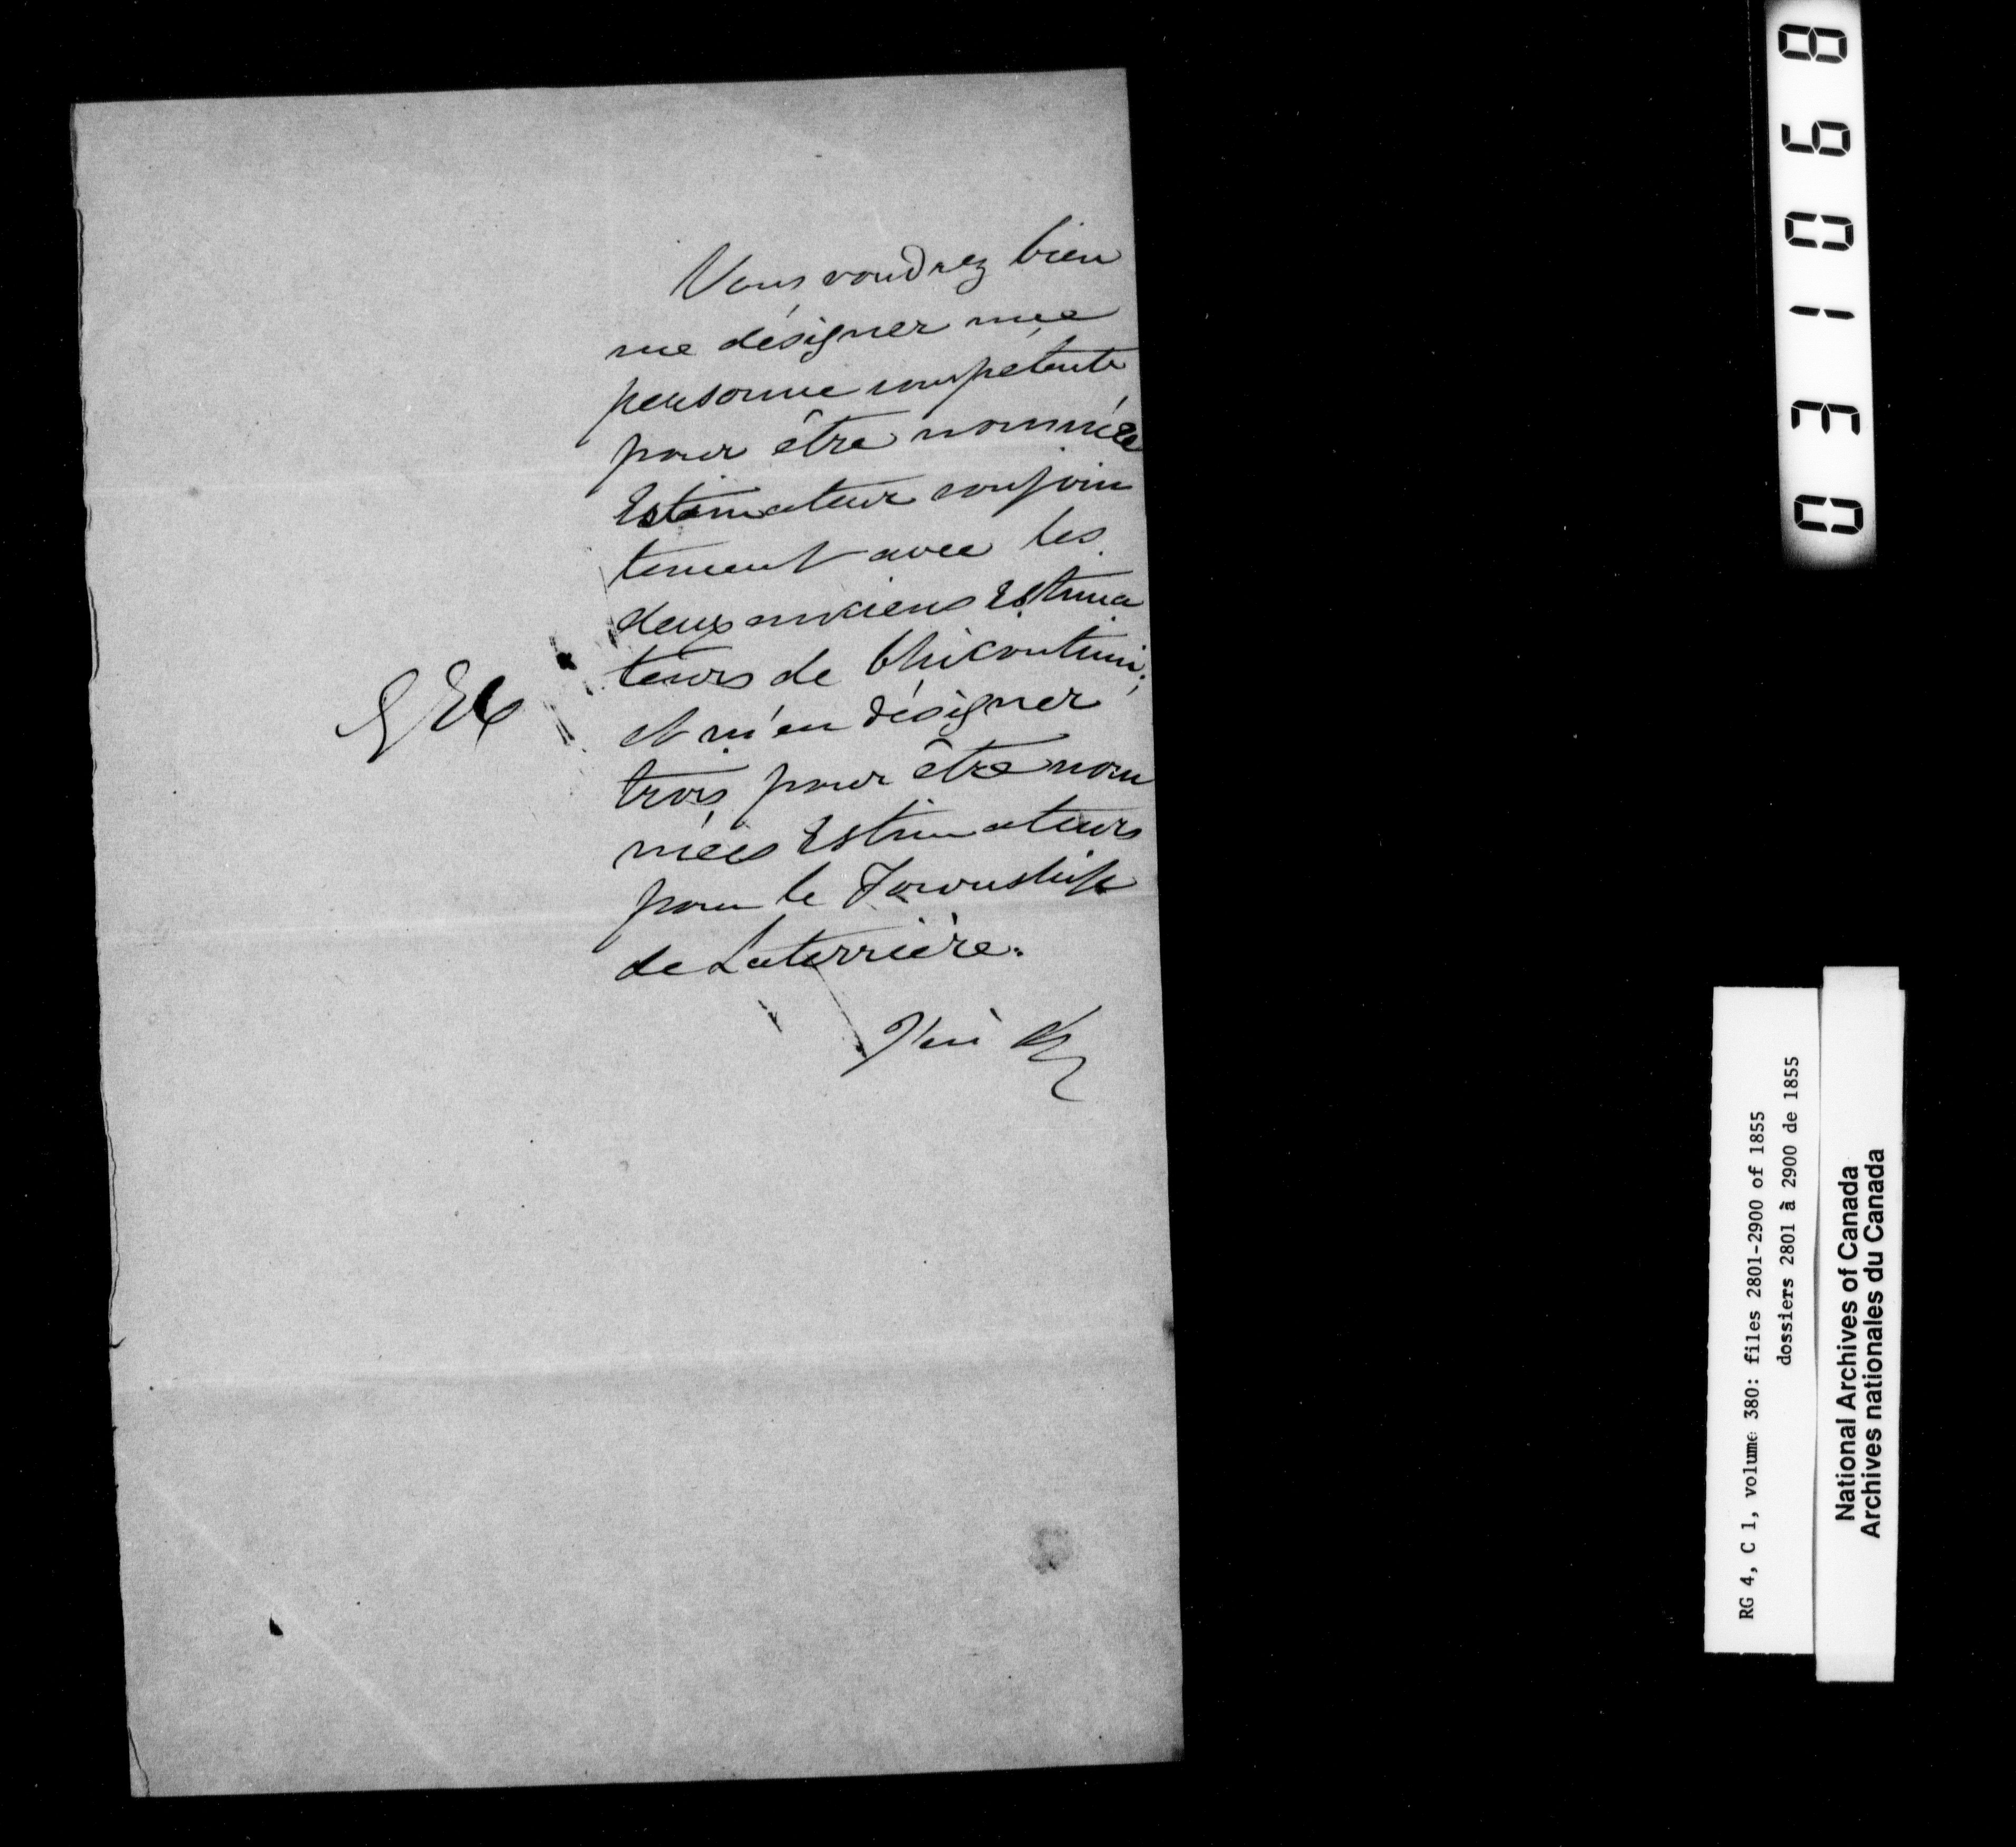 Vous voudrez bien
me désigner une
personne compétente
pour être nommée
Estimateur conjoin
tement avec les
deux anciens Estima
teurs de Chicoutimi;
et m'en désigner
trois pour être nom
mées Estimateurs
pour le Township
de Laterrière.
J'ai &c
031068
RG 4, C 1, volume 380: files 2801-2900 of 1855
dossiers 2801 à 2900 de 1855
National Archives of Canada
Archives nationales du Canada